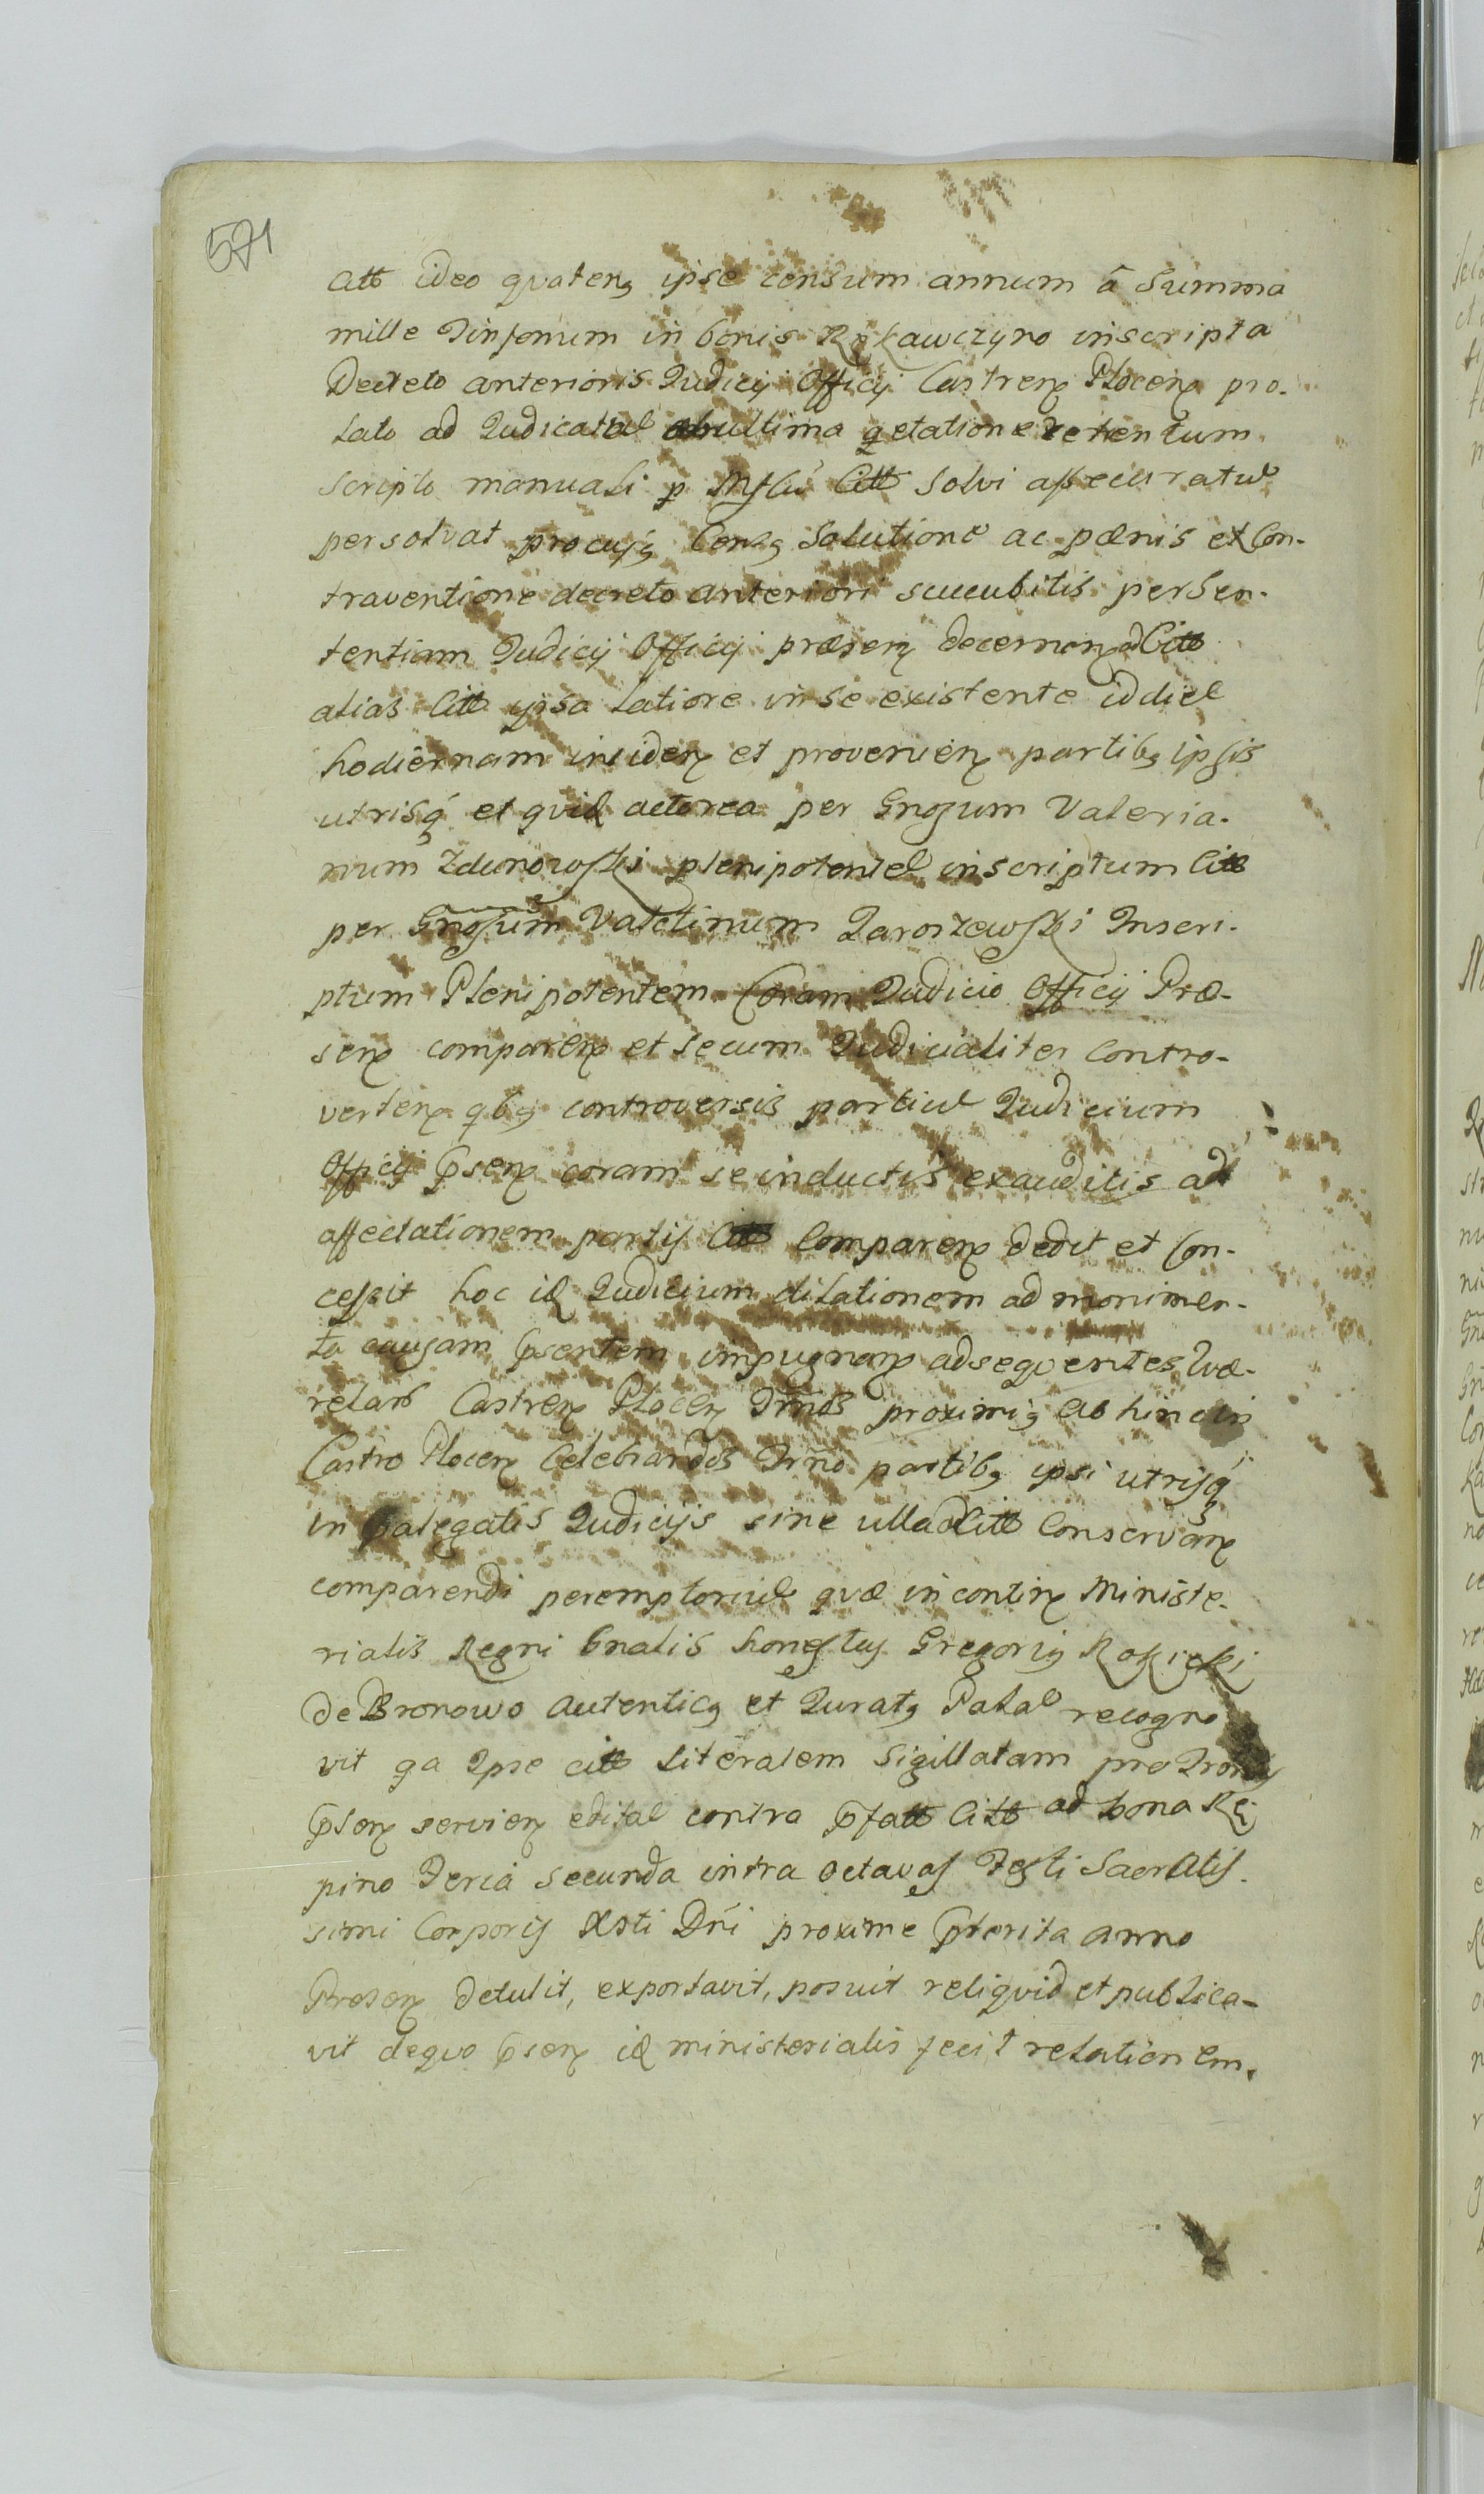 571
Citt ideo quatenq ipse censum annum à Summa
mille Tinfonum in bonis Rękawczyno inscripta
Decreto anterioris Judicij Officij Castrenỹ Plocenỹ pro-
lato ad Judicatal ab ultima qetatione retentum
Scripto manuali p Mgfcũ Citt Solvi assecuratũ
persolvat pro cujq Censq Solutione ac pœnis et Con-
traventione decreto anteriori succubitis per Sen-
tentiam Judicij Officij præsenỹ decernenỹ adCitt
alias Citt ipsa latiore in se existente id diel
hodiernam incidenỹ et provenienỹ partibq ipsis
utrisq́ et quid actorea per Gnosum Valeria-
num Zdunowski plenipotentel inscriptum Citt
per Gnosum Valetinum Jaroszewski Inscri-
ptum Plenipotentem Coram Judicio Officij Præ-
senỹ comparenỹ et secum Judicialiter Contro-
vertenỹ qbq controversis partiul Judicium
Officij Psenỹ coram se inductis exauditis ad
affectationem partis Citt Comparenỹ dedit et Con-
cessit hoc id Judicium dilationem ad monimen-
ta causam Psentem impugnanỹ ad sequentes Quæ-
relarỹ Castrenỹ Plocenỹ Trños proximiq ab hinc in
Castro Plocenỹ Celebrandos Trño partibq ipsi utrisq́
in Palegatis Judicijs sine ulla adCitt Conservanỹ
comparendi peremptoriul quæ in continỹ Ministe-
rialis Regni Gnalis honestus Gregoriq Rokicki
de Bronowo autenticq et Juratq Palal recogno
vit qa Ipse citt Literalem Sigillatam pro Trõnis
Psenỹ servienỹ edital contra Pfatt Citt ad bona Rę
pino Feria Secunda intra octavas Festi Sacratis-
simi Corporis Xsti Dñi proxime Pterita anno
Presenỹ detulit, exportavit, posuit reliquid et publica-
vit dequo Psenỹ id ministerialis fecit relationem.